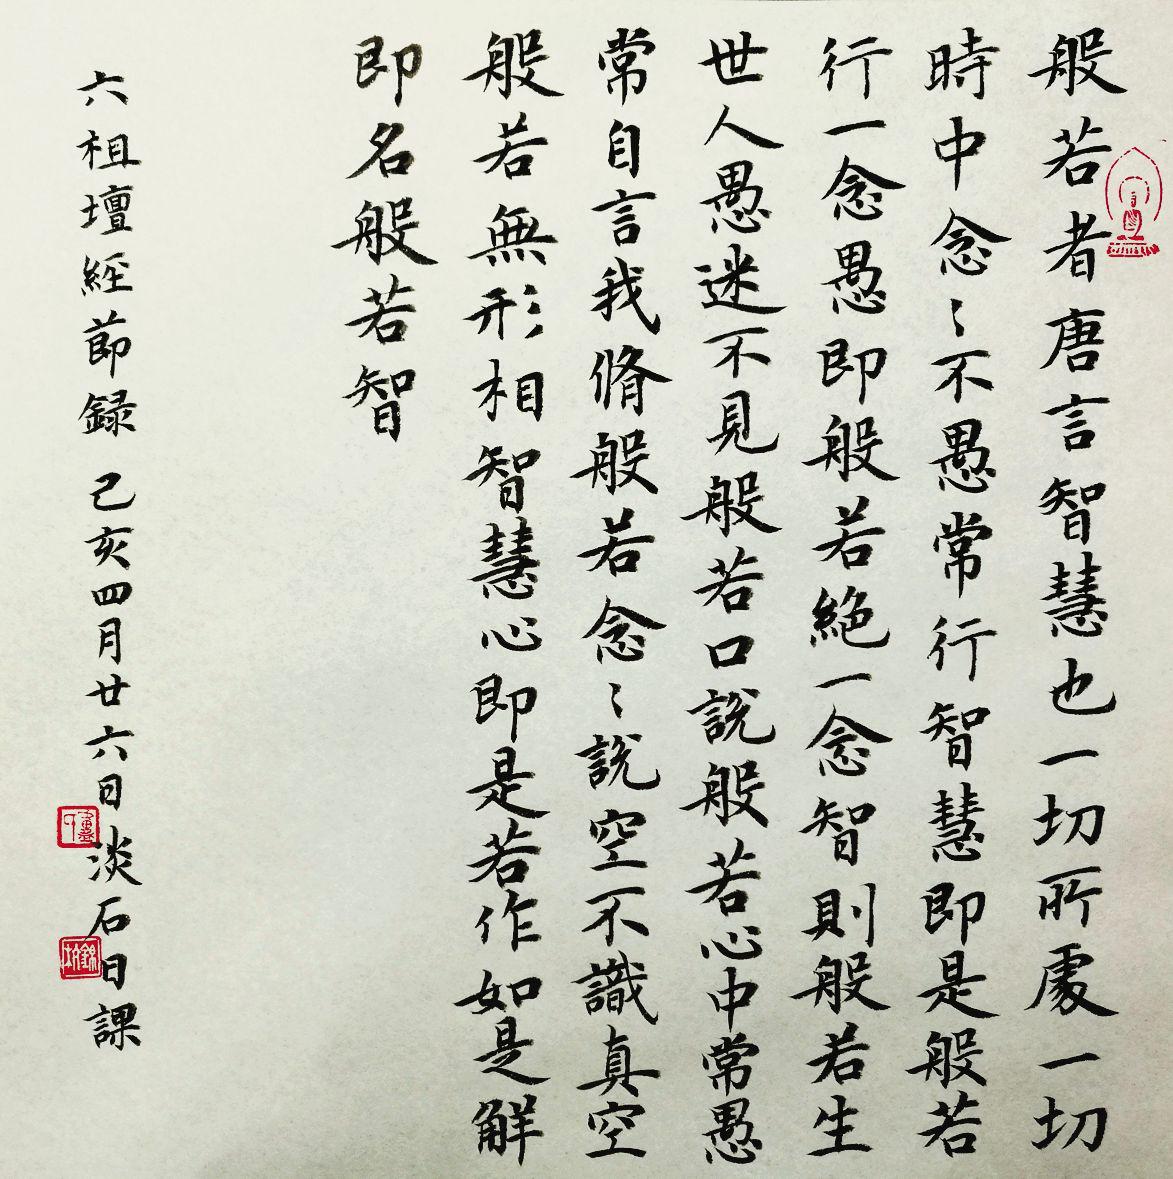 般若者唐言智慧也一切所處一切
時中念〻不愚常行智慧即是般若
行一念愚即般若絶一念智則般若生
世人愚迷不見般若口説般若心中常愚
常自言我脩般若念〻説空不識真空
般若無形相智慧心即是若作如是解
即名般若智
六祖壇經節録 己亥四月廿六日淡石日課